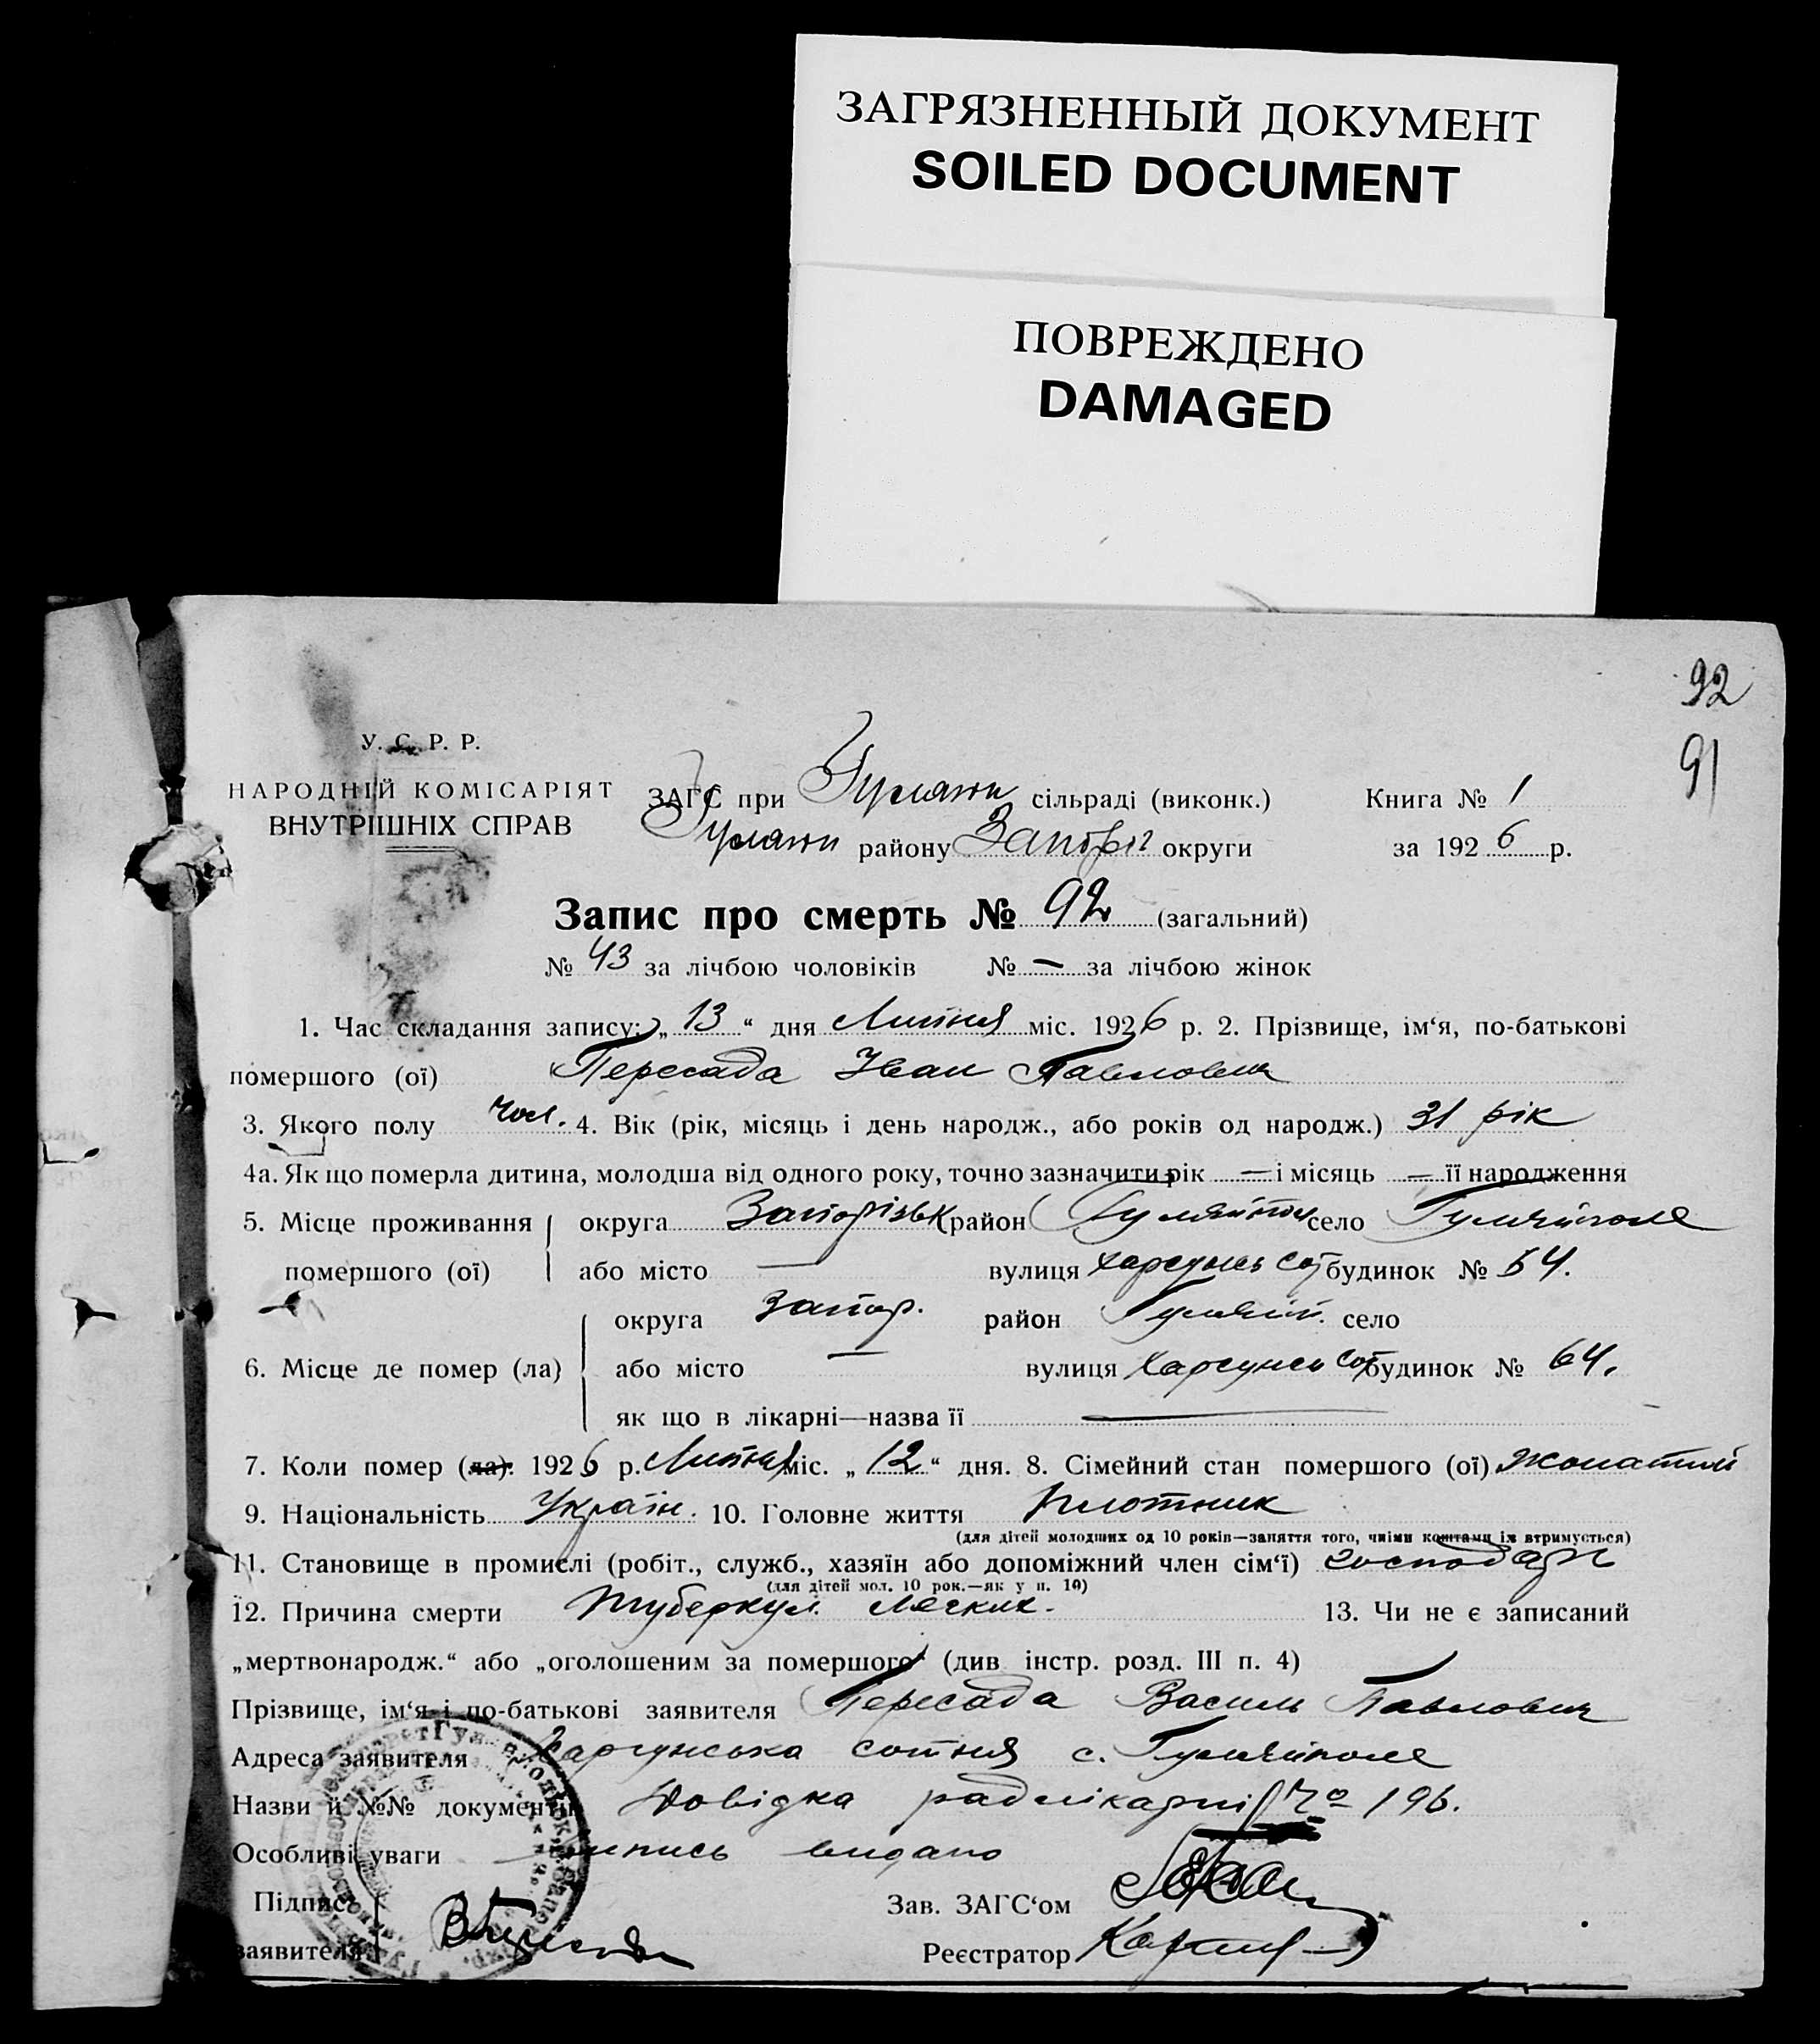 ЗАГРЯЗНЕННЫЙ ДОКУМЕНТ
SOILED DOCUMENT
ПОВРЕЖДЕНО
DAMAGED
92
91
У. С. Р. Р.
НАРОДНІЙ КОМІСАРІЯТ
ВНУТРІШНІХ СПРАВ
ЗАГС при Гуляип сільраді (виконк.) Книга № 1
Гуляип району Запоріз округи за 1926 р.
Запис про смерть № 92 (загальний)
№ 43 за лічбою чоловіків № — за лічбою жінок
1. Час складання запису: „13“ дня Липня міс. 1926 р. 2. Прізвище, ім‘я, по-батькові
помершого (ої) Пересада Іван Павлович
3. Якого полу чол. 4. Вік (рік, місяць і день народж., або років од народж.) 31 рік
4а. Як що померла дитина, молодша від одного року, точно зазначити рік — і місяць — її народження
5. Місце проживання округа Запорізьк район Гуляйпол село Гуляйполе
помершого (ої) або місто — вулиця Харсунсь сот будинок № 64.
округа Запор. район Гуляйп. село
6. Місце де помер (ла) або місто — вулиця Харсунсь сот будинок № 64.
як що в лікарні—назва її —
7. Коли помер (ла). 1926 р. Липня міс. „12“ дня. 8. Сімейний стан помершого (ої) жонатий
9. Національність Україн. 10. Головне життя Плотник
(для дітей молодших од 10 років—заняття того, чиїми коштами їх втримується)
11. Становище в промислі (робіт., служб., хазяїн або допоміжний член сім‘ї) господар
(для дітей мол. 10 рок.—як у п. 10)
12. Причина смерти Туберкул. Легких. 13. Чи не є записаний
„мертвонародж.“ або „оголошеним за помершого“ (див інстр. розд. III п. 4)
Прізвище, ім‘я і по-батькові заявителя Пересада Василь Павлович
Адреса заявителя Харсунська сотня с. Гуляйполе
Назви й №№ документів Довідка радлікарні № 196.
Особливі уваги випись видано
Підпис Зав. ЗАГС‘ом
заявителя Реєстратор